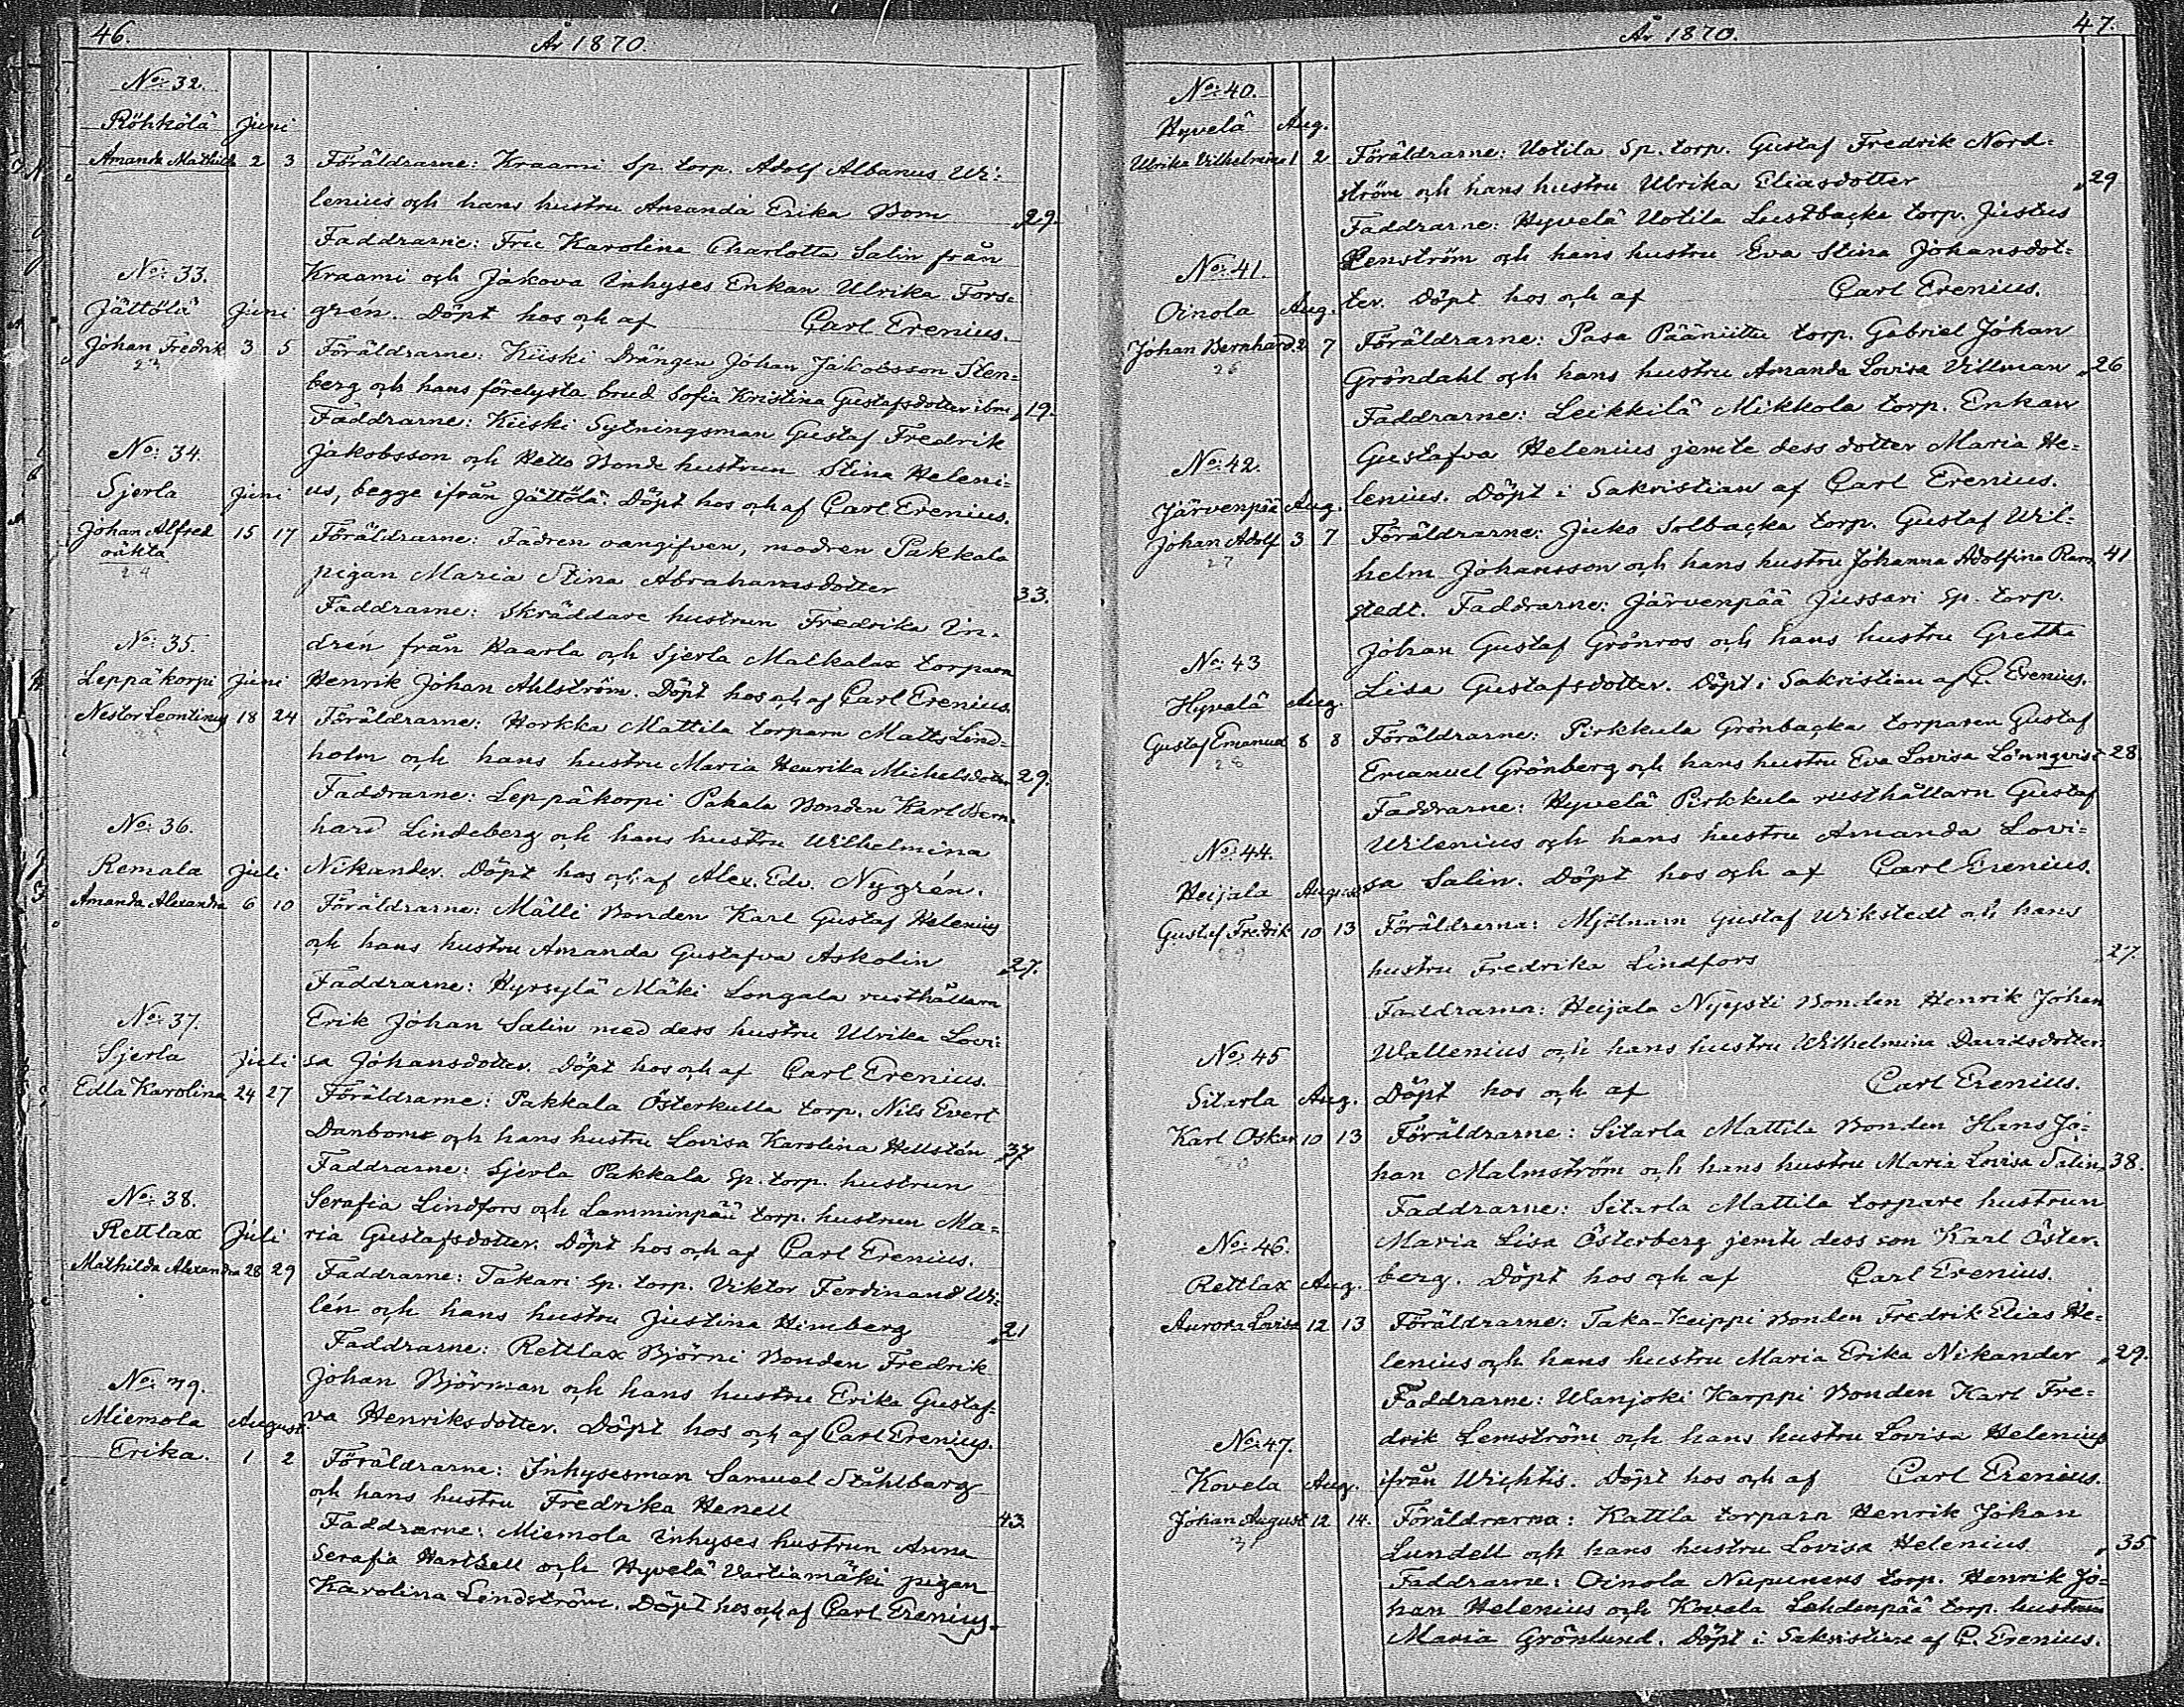 46.
År 1870.
No: 32.
Röhkölä Juni
Amanda Mathilda 2 3 Föräldrarne: Kraami Sp. torp. Adolf Albanus Wi-
lenius och hans hustru Amanda Erika Bom „29.
Faddrarne: Fru Karolina Charlotta Salin från
No: 33. Kraami och Jakova Inhyses Enkan Ulrika Fors-
Jättölä Juni grén. Döpt hos och af Carl Erenius.
Johan Fredrik 3 5 Föräldrarne: Kiiski Drängen Johan Jakobsson Sten-
23
berg och hans förelysta brud Sofia Kristina Gustafsdotter ibm „19.
Faddrarne: Kiiski Sytningsman Gustaf Fredrik
No: 34. Jakobsson och Hetto Bonde hustrun Stina Heleni-
Sjerla Juni us, begge ifrån Jättölä. Döpt hos och af Carl Erenius.
Johan Alfred 15 17 Föräldrarne: Fadren oangifven, modren Pakkala
oäkta
24
pigan Maria Stina Abrahamsdotter 33.
Faddrarne: Skräddare hustrun Fredrika In-
No: 35. drén från Haarla och Sjerla Malkalax torparn
Leppäkorpi Juni Henrik Johan Ahlström. Döpt hos och af Carl Erenius.
Nestor Leontinus 18 24 Föräldrarne: Horkka Mattila torparn Matts Lind-
holm och hans hustru Maria Henrika Michelsdotter 29.
Faddrarne: Leppäkorpi Pahala Bonden Karl Bern-
No: 36. hard Lindeberg och hans hustru Wilhelmina
Remala Juli Nikander. Döpt hos och af Alex. Edv. Nygrén.
Amanda Alexandra 6 10 Föräldrarne: Mälli Bonden Karl Gustaf Helenius
och hans hustru Amanda Gustafva Askolin „27.
Faddrarne: Hyrsylä Mäki Longala rusthållarn
No: 37. Erik Johan Salin med dess hustru Ulrika Lovi-
Sjerla Juli sa Johansdotter. Döpt hos och af Carl Erenius.
Edla Karolina 24 27 Föräldrarne: Pakkala Österkulla torp. Nils Evert
Danbom och hans hustru Lovisa Karolina Hellstén „37
Faddrarne: Sjerla Pakkala Sp. torp. hustrun
No: 38. Serafia Lindfors och Lamminpää torp. hustrun Ma-
Rettlax Juli ria Gustafsdotter. Döpt hos och af Carl Erenius.
Mathilda Alexandra 28 29 Faddrarne: Takari Sp. torp. Viktor Ferdinand Wi-
lén och hans hustru Justina Himberg „21
Faddrarne: Rettlax Björni Bonden Fredrik
No: 39. Johan Björman och hans hustru Erika Gustaf-
Miemola August. va Henriksdotter. Döpt hos och af Carl Erenius.
Erika. 1 2 Föräldrarne: Inhysesman Samuel Ståhlberg
och hans hustru Fredrika Henell 43.
Faddrarne: Miemola Inhyses hustrun Anna
Serafia Hartzell och Hyvelä Vartiamäki pigan
Karolina Lindström. Döpt hos och af Carl Erenius.
47.
År 1870.
No: 40.
Hyvelä Aug.
Ulrika Vilhelmina 1 2 Föräldrarne: Uotila Sp. torp. Gustaf Fredrik Nord-
ström och hans hustru Ulrika Eliasdotter „29
Faddrarne: Hyvelä Uotila Lustbacka torp. Justus
No: 41. Penström och hans hustru Eva Stina Johansdot-
Oinola Aug. ter. Döpt hos och af Carl Erenius.
Johan Bernhard 2 7 Föräldrarne: Pasa Pääniittu torp. Gabriel Johan
26
Gröndahl och hans hustru Amanda Lovisa Villman „26
Faddrarne: Leikkilä Mikkola torp. Enkan
No: 42. Gustafva Helenius jemte dess dotter Maria He-
Järvenpää Aug. lenius. Döpt i Sakristian af Carl Erenius.
Johan Adolf 3 7 Föräldrarne: Jucko Solbacka torp. Gustaf Wil-
27
helm Johansson och hans hustru Johanna Adolfina Ram- 41
stedt. Faddrarne: Järvenpää Jussari Sp. torp.
Johan Gustaf Grönros och hans hustru Gretha
No: 43 Lisa Gustafsdotter. Döpt i Sakristian af C. Erenius.
Hyvelä Aug.
Gustaf Emanuel 8 8 Föräldrarne: Pirkkula Grönbacka torparen Gustaf
28
Emanuel Grönberg och hans hustru Eva Lovisa Lönnqvist 28
Faddrarne: Hyvelä Pirkkula rusthållarn Gustaf
No: 44. Wilenius och hans hustru Amanda Lovi-
Heijala August sa Salin. Döpt hos och af Carl Erenius.
Gustaf Fredrik 10 13 Föräldrarna: Mjölnarn Gustaf Wikstedt och hans
29
hustru Fredrika Lindfors „27.
Faddrarna: Heijala Nyysti Bonden Henrik Johan
No: 45 Wallenius och hans hustru Wilhelmina Davidsdotter.
Sitarla Aug. Döpt hos och af Carl Erenius.
Karl Oskar 10 13 Föräldrarne: Sitarla Mattila Bonden Hans Jo-
30
han Malmström och hans hustru Maria Lovisa Salin „38.
Faddrarne: Sitarla Mattila torpare hustrun
No: 46. Maria Lisa Österberg jemte dess son Karl Öster-
Rettlax Aug. berg. Döpt hos och af Carl Erenius.
Aurora Lovisa 12 13 Föräldrarne: Taka-Keippi Bonden Fredrik Elias He-
lenius och hans hustru Maria Erika Nikander „29.
Faddrarne: Wanjoki Karppi Bonden Karl Fre-
No: 47. drik Lemström och hans hustru Lovisa Helenius
Kovela Aug. ifrån Wichtis. Döpt hos och af Carl Erenius.
Johan August 12 14. Föräldrarna: Kattila torparn Henrik Johan
31
Lundell och hans hustru Lovisa Helenius „35
Faddrarne: Oinola Nupunens torp. Henrik Jo-
han Helenius och Kovela Lehdenpää torp. hustrun
Maria Grönlund. Döpt i Sakristian af C. Erenius.